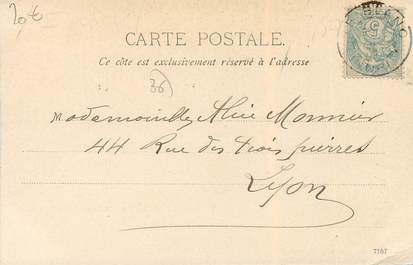 20€
CARTE POSTALE.
Ce côté est exclusivement réservé à l'adresse
(36)
Mademoiselle Alice Monnier
44 Rue des trois pierres
Lyon
7187